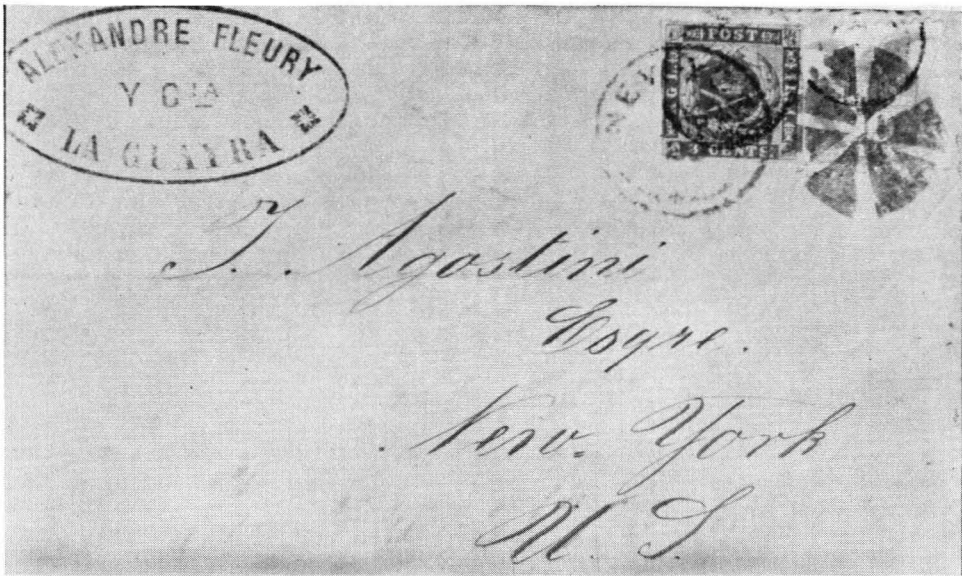 ALEXANDRE FLEURY
Y CIA
LA GUAYRA
NEW
POST
3 CENTS
J. Agostini
Esqre.
New. York
U S.